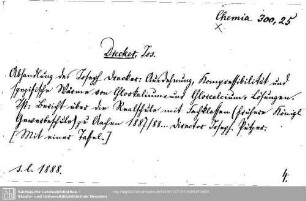 Chemia 300,25
Drecker, Jos.
Abhandlung des Joseph Drecker: Ausdehnung, Kompressibilität und
spezifische Wärme von Chlorkalium- und Chlorcalcium-Lösungen.
Jst: Bericht über die Realschule mit Fachklassen (frühere Königl
Gewerbeschule) zu Aachen 1887/88... Director Joseph. Pützer.
[Mit einer Tafel.]
s. l. 1888. 4.
Sächsische Landesbibliothek -
Staats- und Universitätsbibliothek Dresden